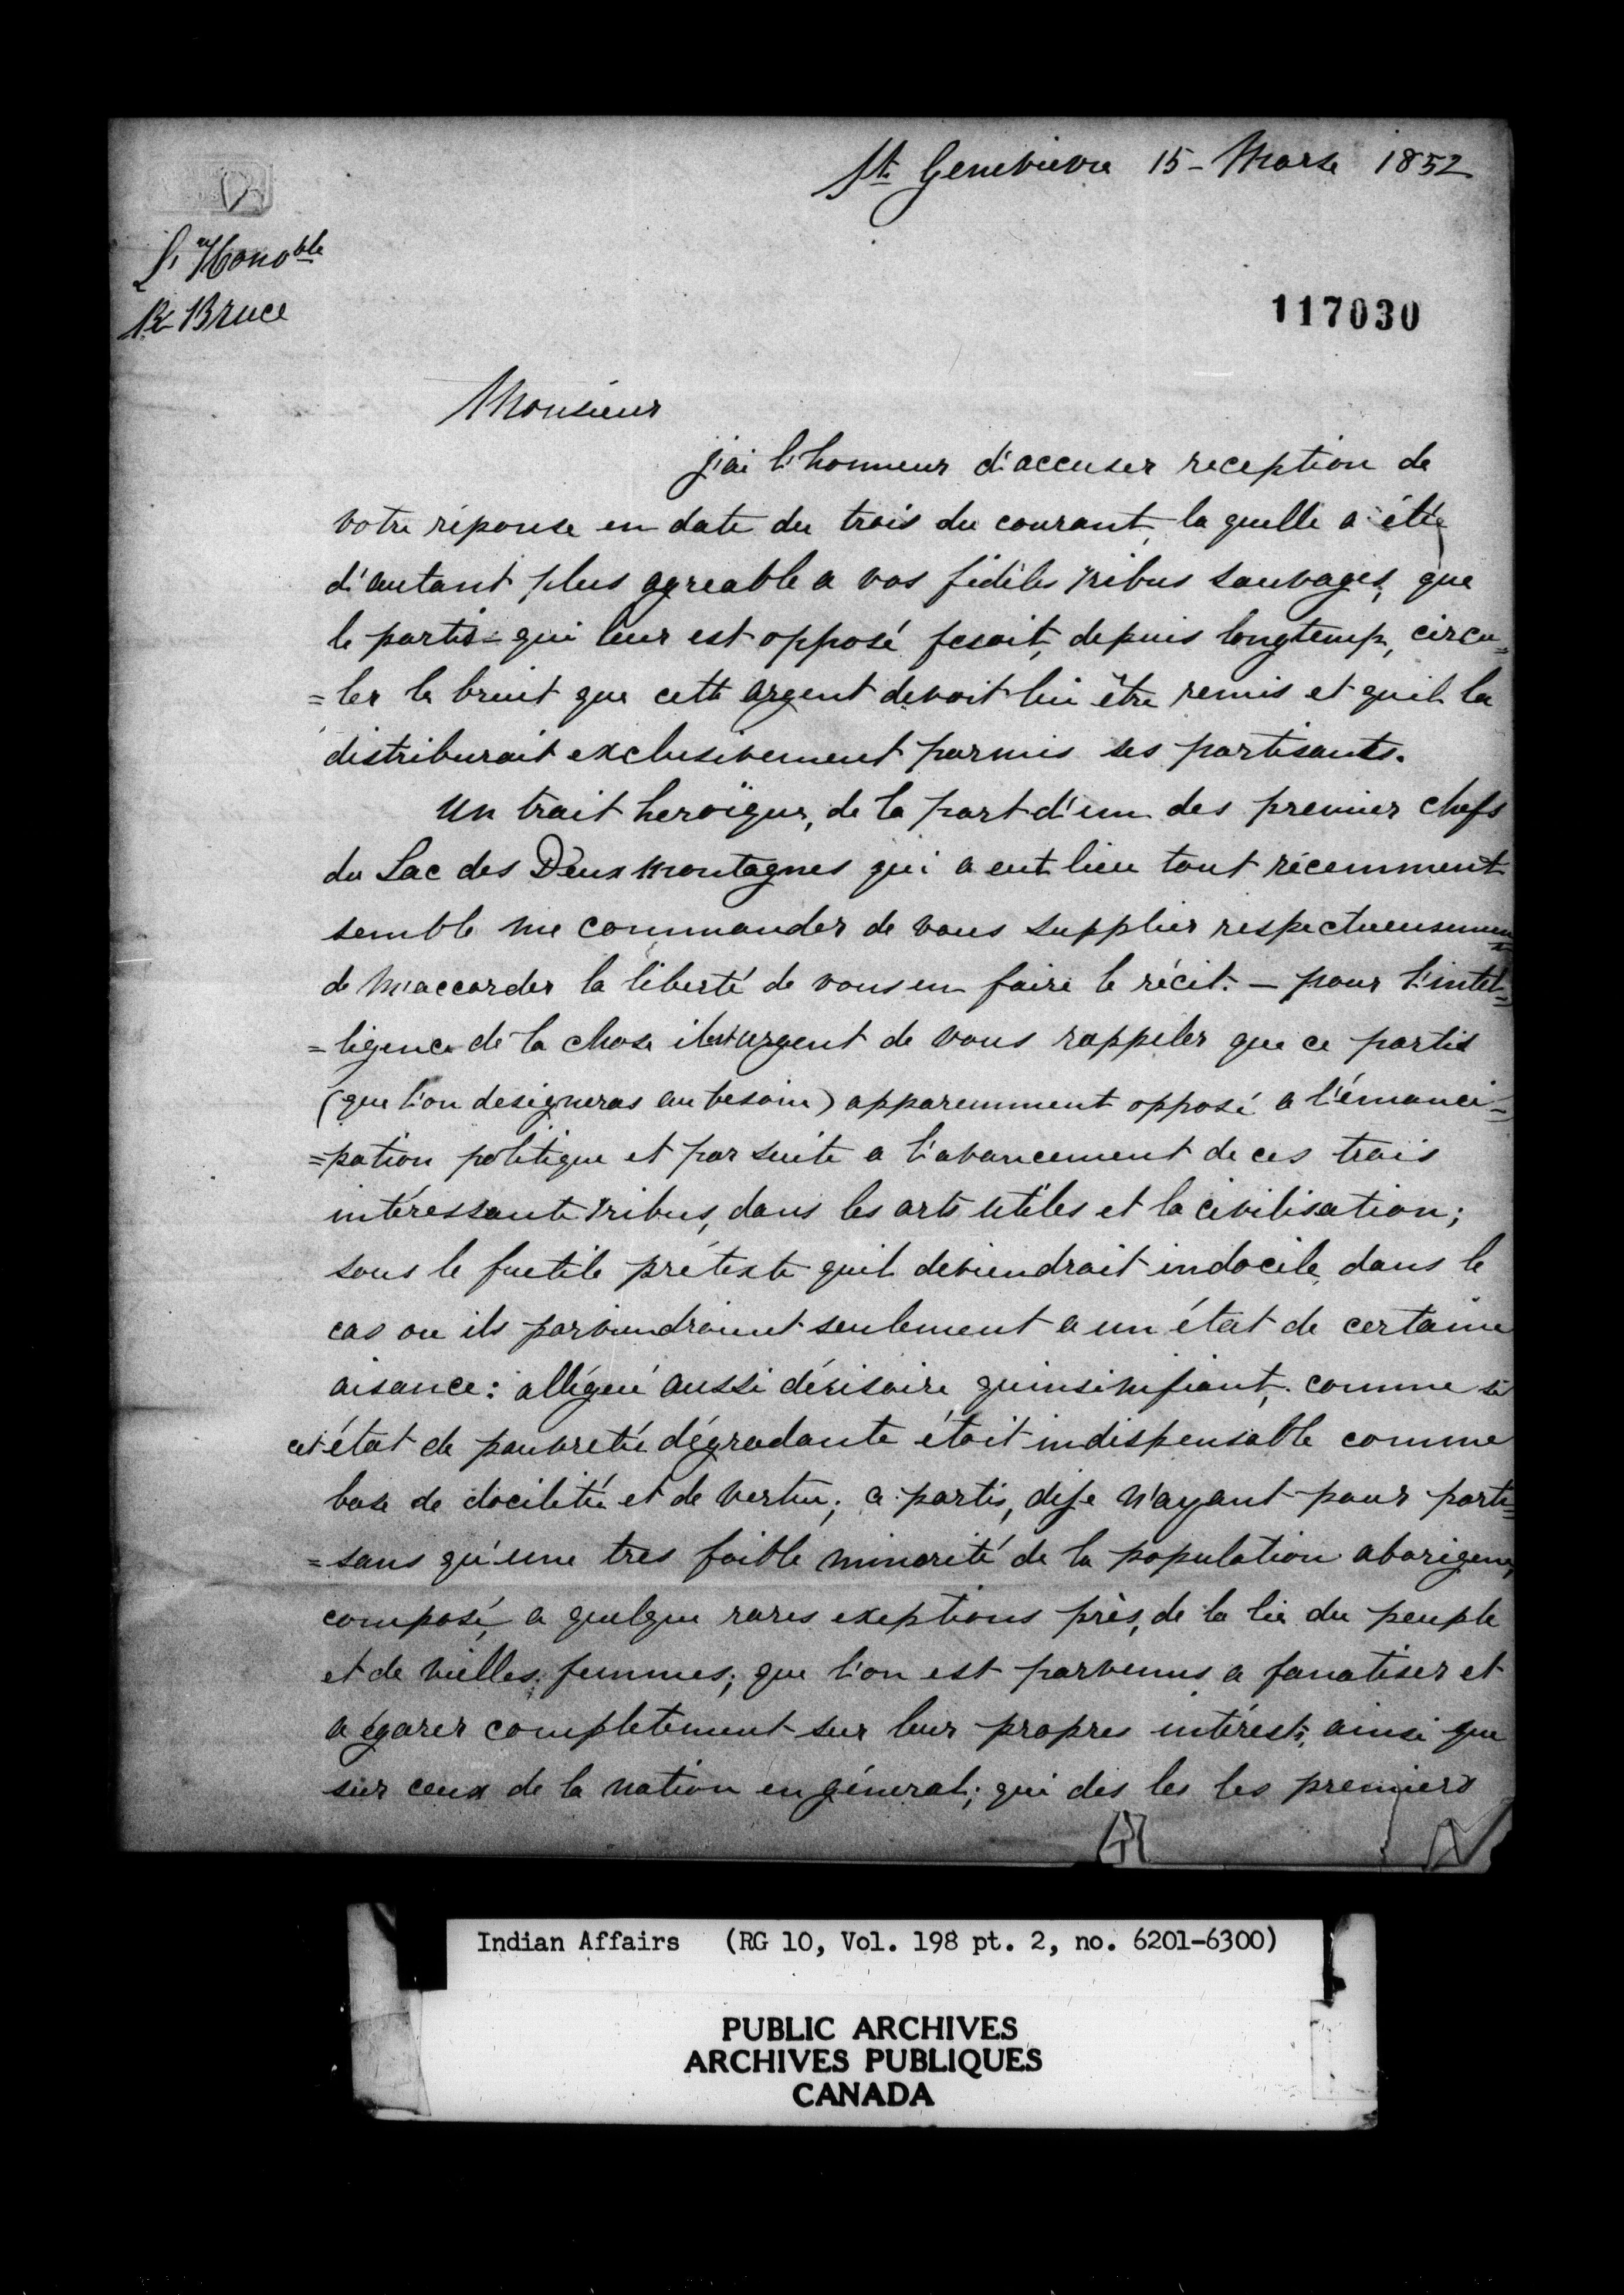 Ste Genevievre 15 - Marse 1852
L'Honoble
R Bruce
117030
Monsieur
j'ai l'honneur d'accuser reception de
votre réponse en date du trois du courant, la quelle a étée
d'autant plus agreable a vos fidèles Tribus sauvages, que
le partis - qui leur est opposé fesoit, depuis longtemp, circu=
=ler le bruit que cette argent devoit lui être remis et quil la
distriburait exclusivement parmis ses partisants.
Un trait heroïque, de la part d'un des premier chefs
du Lac des Deux Montagnes qui a eut lieu tout récemment
semble me commander de vous supplier respectueusement
de m'accorder la liberté de vous en faire le récit. - pour l'intel=
=ligence de la chose il est urgent de vous rappeler que ce partis
(que l'on designeras au besoin) apparemment opposé a l'émanci=
=pation politique et par suite a l'avancement de ces trois
intéressante Tribus, dans les arts utiles et la civilisation;
sous le futile prétexte quil deviendrait indocile, dans le
cas ou ils parviendroient seulement a un état de certaine
aisance: allégué aussi dérisoire, quinsinifiant, comme si
cet état de pauvretée dégradante étoit indispensable comme
base de docilitée et de vertu; ce partis, disje n'ayant pour parti=
=sans qu'une tres foible minorité de la population aborigene,
composé, a quelque rares exeptions près, de la lie du peuple
et de vielles femmes; que l'on est parvenus a fanatiser et
a égarer completement sur leur propres intérest, ainsi que
sur ceux de la nation en géneral; qui des les les premiers
Indian Affairs (RG 10, Vol. 198 pt. 2, no. 6201-6300)
PUBLIC ARCHIVES
ARCHIVES PUBLIQUES
CANADA